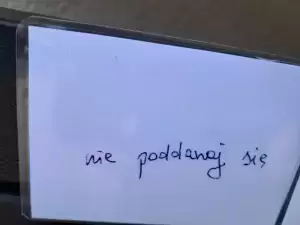 nie poddawaj się